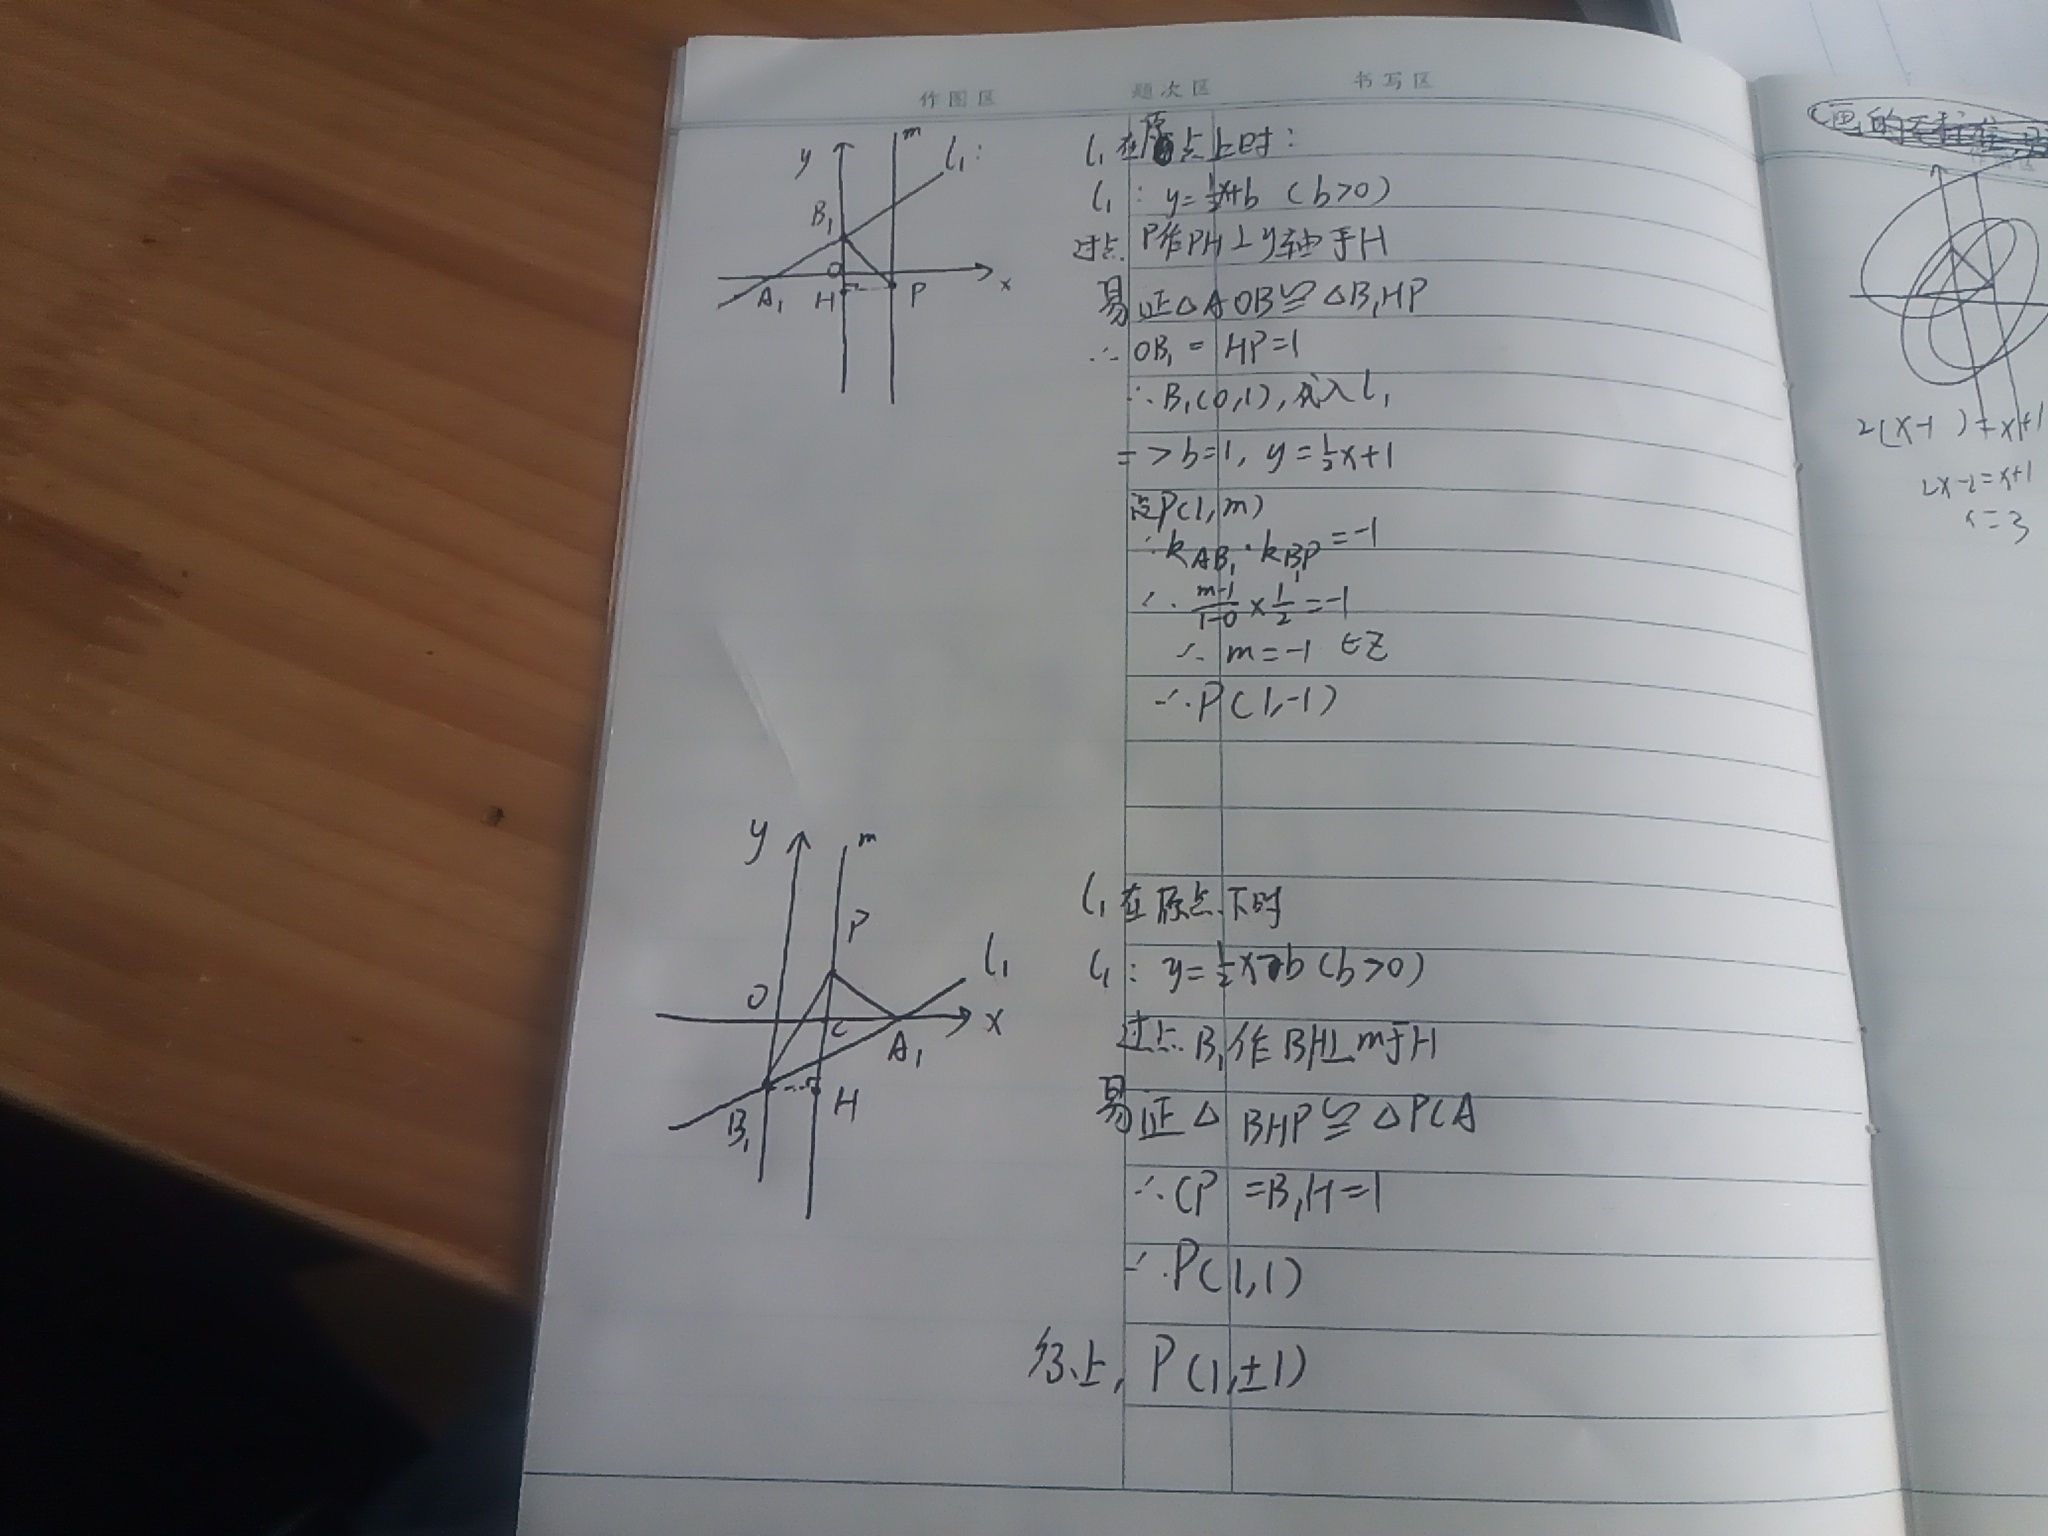 作图区 题次区 书写区
y m l₁:
B₁
O
A₁ H P x
l₁在原点上时:
l₁: y=½x+b (b>0)
过点P作PH⊥y轴于H
易证△AOB≌△B₁HP
∴OB₁=HP=1
∴B₁(0,1),代入l₁
=>b=1, y=½x+1
设P(1,m)
∵k_AB₁·k_B₁P=-1
∴(m-1)/(1-0)×1/2=-1
∴m=-1 ∈Z
∴P(1,-1)
y m
P
l₁
O C A₁ x
B₁ H
l₁在原点下时
l₁: y=½x-b (b>0)
过点B₁作BH⊥m于H
易证△BHP≌△PCA
∴CP=B₁H=1
∴P(1,1)
综上, P(1,±1)
2(x-1)=x+1
2x-2=x+1
x=3